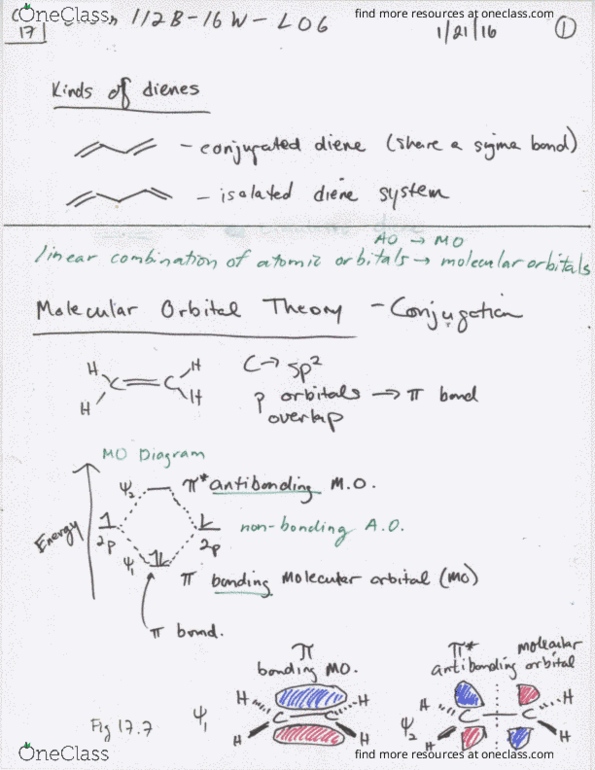 OneClass
find more resources at oneclass.com
17
112B-16W-L06
1/21/16
1
Kinds of dienes
- conjugated diene (share a sigma bond)
- isolated diene system
AO → MO
linear combination of atomic orbitals → molecular orbitals
Molecular Orbital Theory - Conjugation
H H
C C
H H
C → sp²
p orbitals → π bond
overlap
MO Diagram
ψ₂ π* antibonding M.O.
Energy
non-bonding A.O.
2p 2p
ψ₁
π bonding Molecular orbital (MO)
π bond.
π
bonding MO.
π* molecular
antibonding orbital
Fig 17.7
ψ₁
H H
C C
H H
ψ₂
H H
C C
H H
OneClass
find more resources at oneclass.com